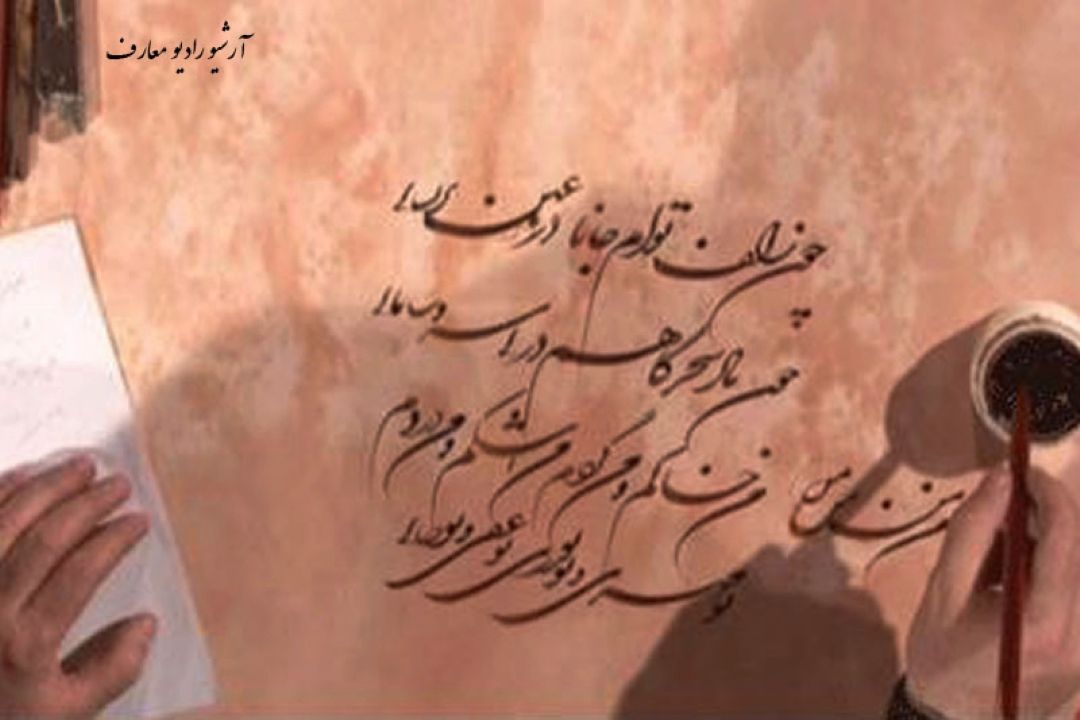 آرشیو رادیو معارف
چون زلف توام جانا در عین پریشانی
چون باد سحرگاهم در بی سر و سامانی
من خاکم و من گردم من اشکم و من دردم
تو مهری و تو نوری تو عشقی و تو جانی